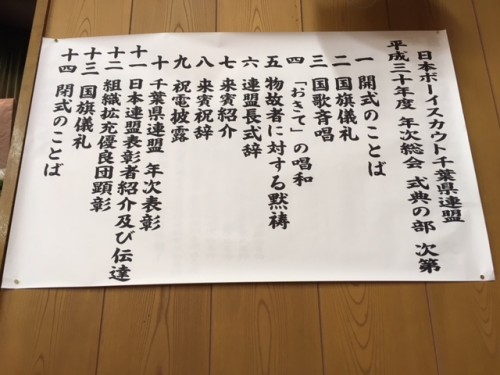 日本ボーイスカウト千葉県連盟
平成三十年度 年次総会 式典の部 次第
一 開式のことば
二 国旗儀礼
三 国歌斉唱
四 「おきて」の唱和
五 物故者に対する黙祷
六 連盟長式辞
七 来賓紹介
八 来賓祝辞
九 祝電披露
十 千葉県連盟 年次表彰
十一 日本連盟表彰者紹介及び伝達
十二 組織拡充優良団顕彰
十三 国旗儀礼
十四 閉式のことば